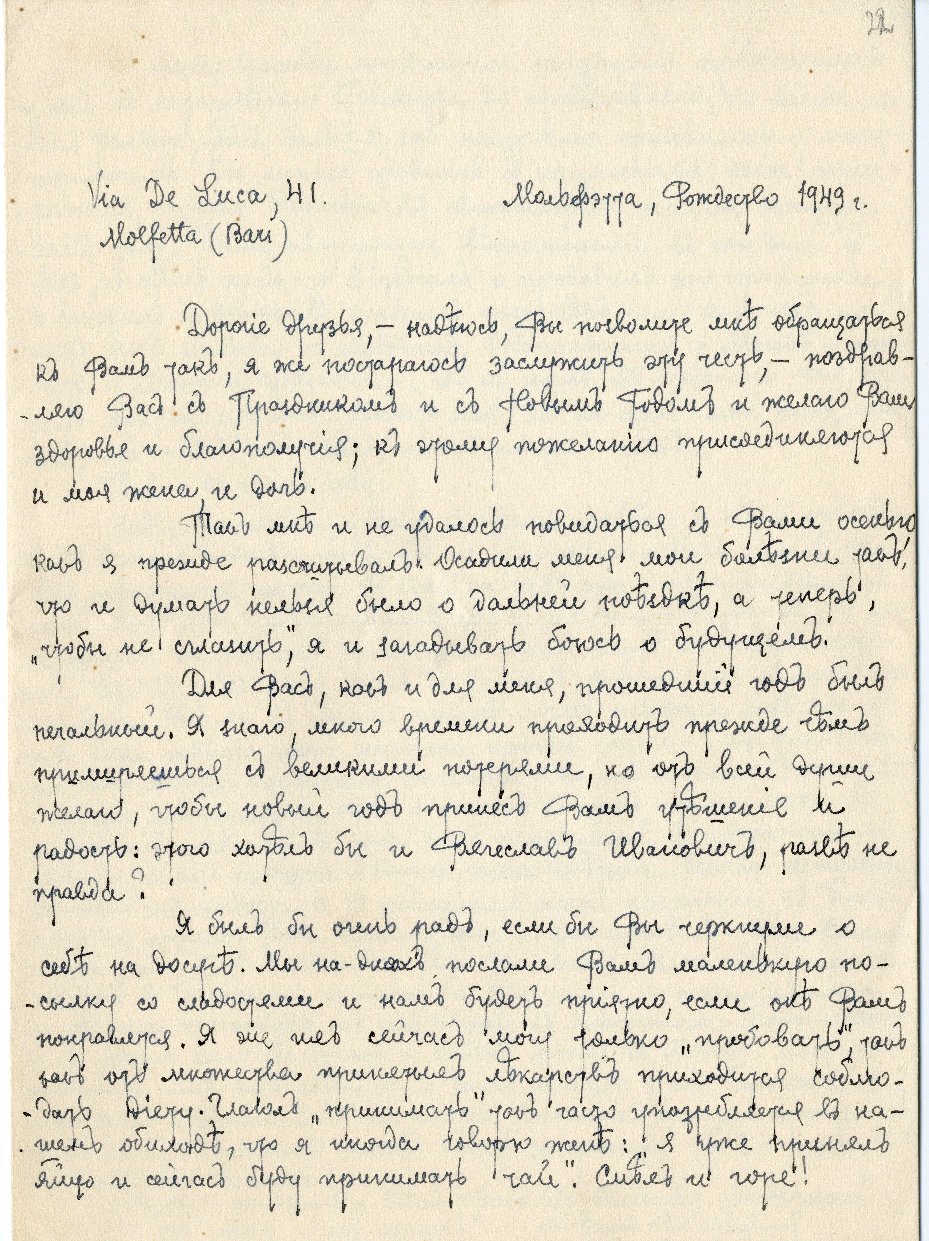 22
Via De Luca, 41.
Мольфэтта, Рождество 1949 г.
Molfetta (Bari)
Дорогіе друзья, – надѣюсь, Вы позволите мнѣ обращаться
къ Вамъ такъ, я же постараюсь заслужить эту честь, – поздрав-
-ляю Васъ съ Праздникомъ и съ Новымъ Годомъ и желаю Вамъ
здоровье и благополучія; къ этому пожеланію присоединяются
и моя жена, и дочь.
Такъ мнѣ и не удалось повидаться съ Вами осенью,
какъ я прежде разсчитывалъ. Осадили меня мои болѣзни такъ,
что и думать нельзя было о дальней поѣздкѣ, а теперь,
„чтобы не сглазить", я и загадывать боюсь о будущемъ.
Для Васъ, какъ и для меня, прошедшій годъ былъ
печальный. Я знаю, много времени проходитъ прежде чѣмъ
примиряешься съ великими потерями, но отъ всей души
желаю, чтобы новый годъ принесъ Вамъ утѣшеніе и
радость: этого хотѣлъ бы и Вячеславъ Ивановичъ, развѣ не
правда?
Я былъ бы очень радъ, если бы Вы черкнули о
себѣ на досугѣ. Мы на-дняхъ послали Вамъ маленькую по-
-сылку со сладостями и намъ будетъ пріятно, если онѣ Вамъ
понравятся. Я же ихъ сейчасъ могу только „пробовать", такъ
какъ отъ множества принятыхъ лѣкарствъ приходится соблю-
-дать діету. Глаголъ „принимать" такъ часто употребляется въ на-
шемъ обиходѣ, что я иногда говорю женѣ: „я уже принялъ
яйцо и сейчасъ буду принимать чай". Смѣхъ и горе!